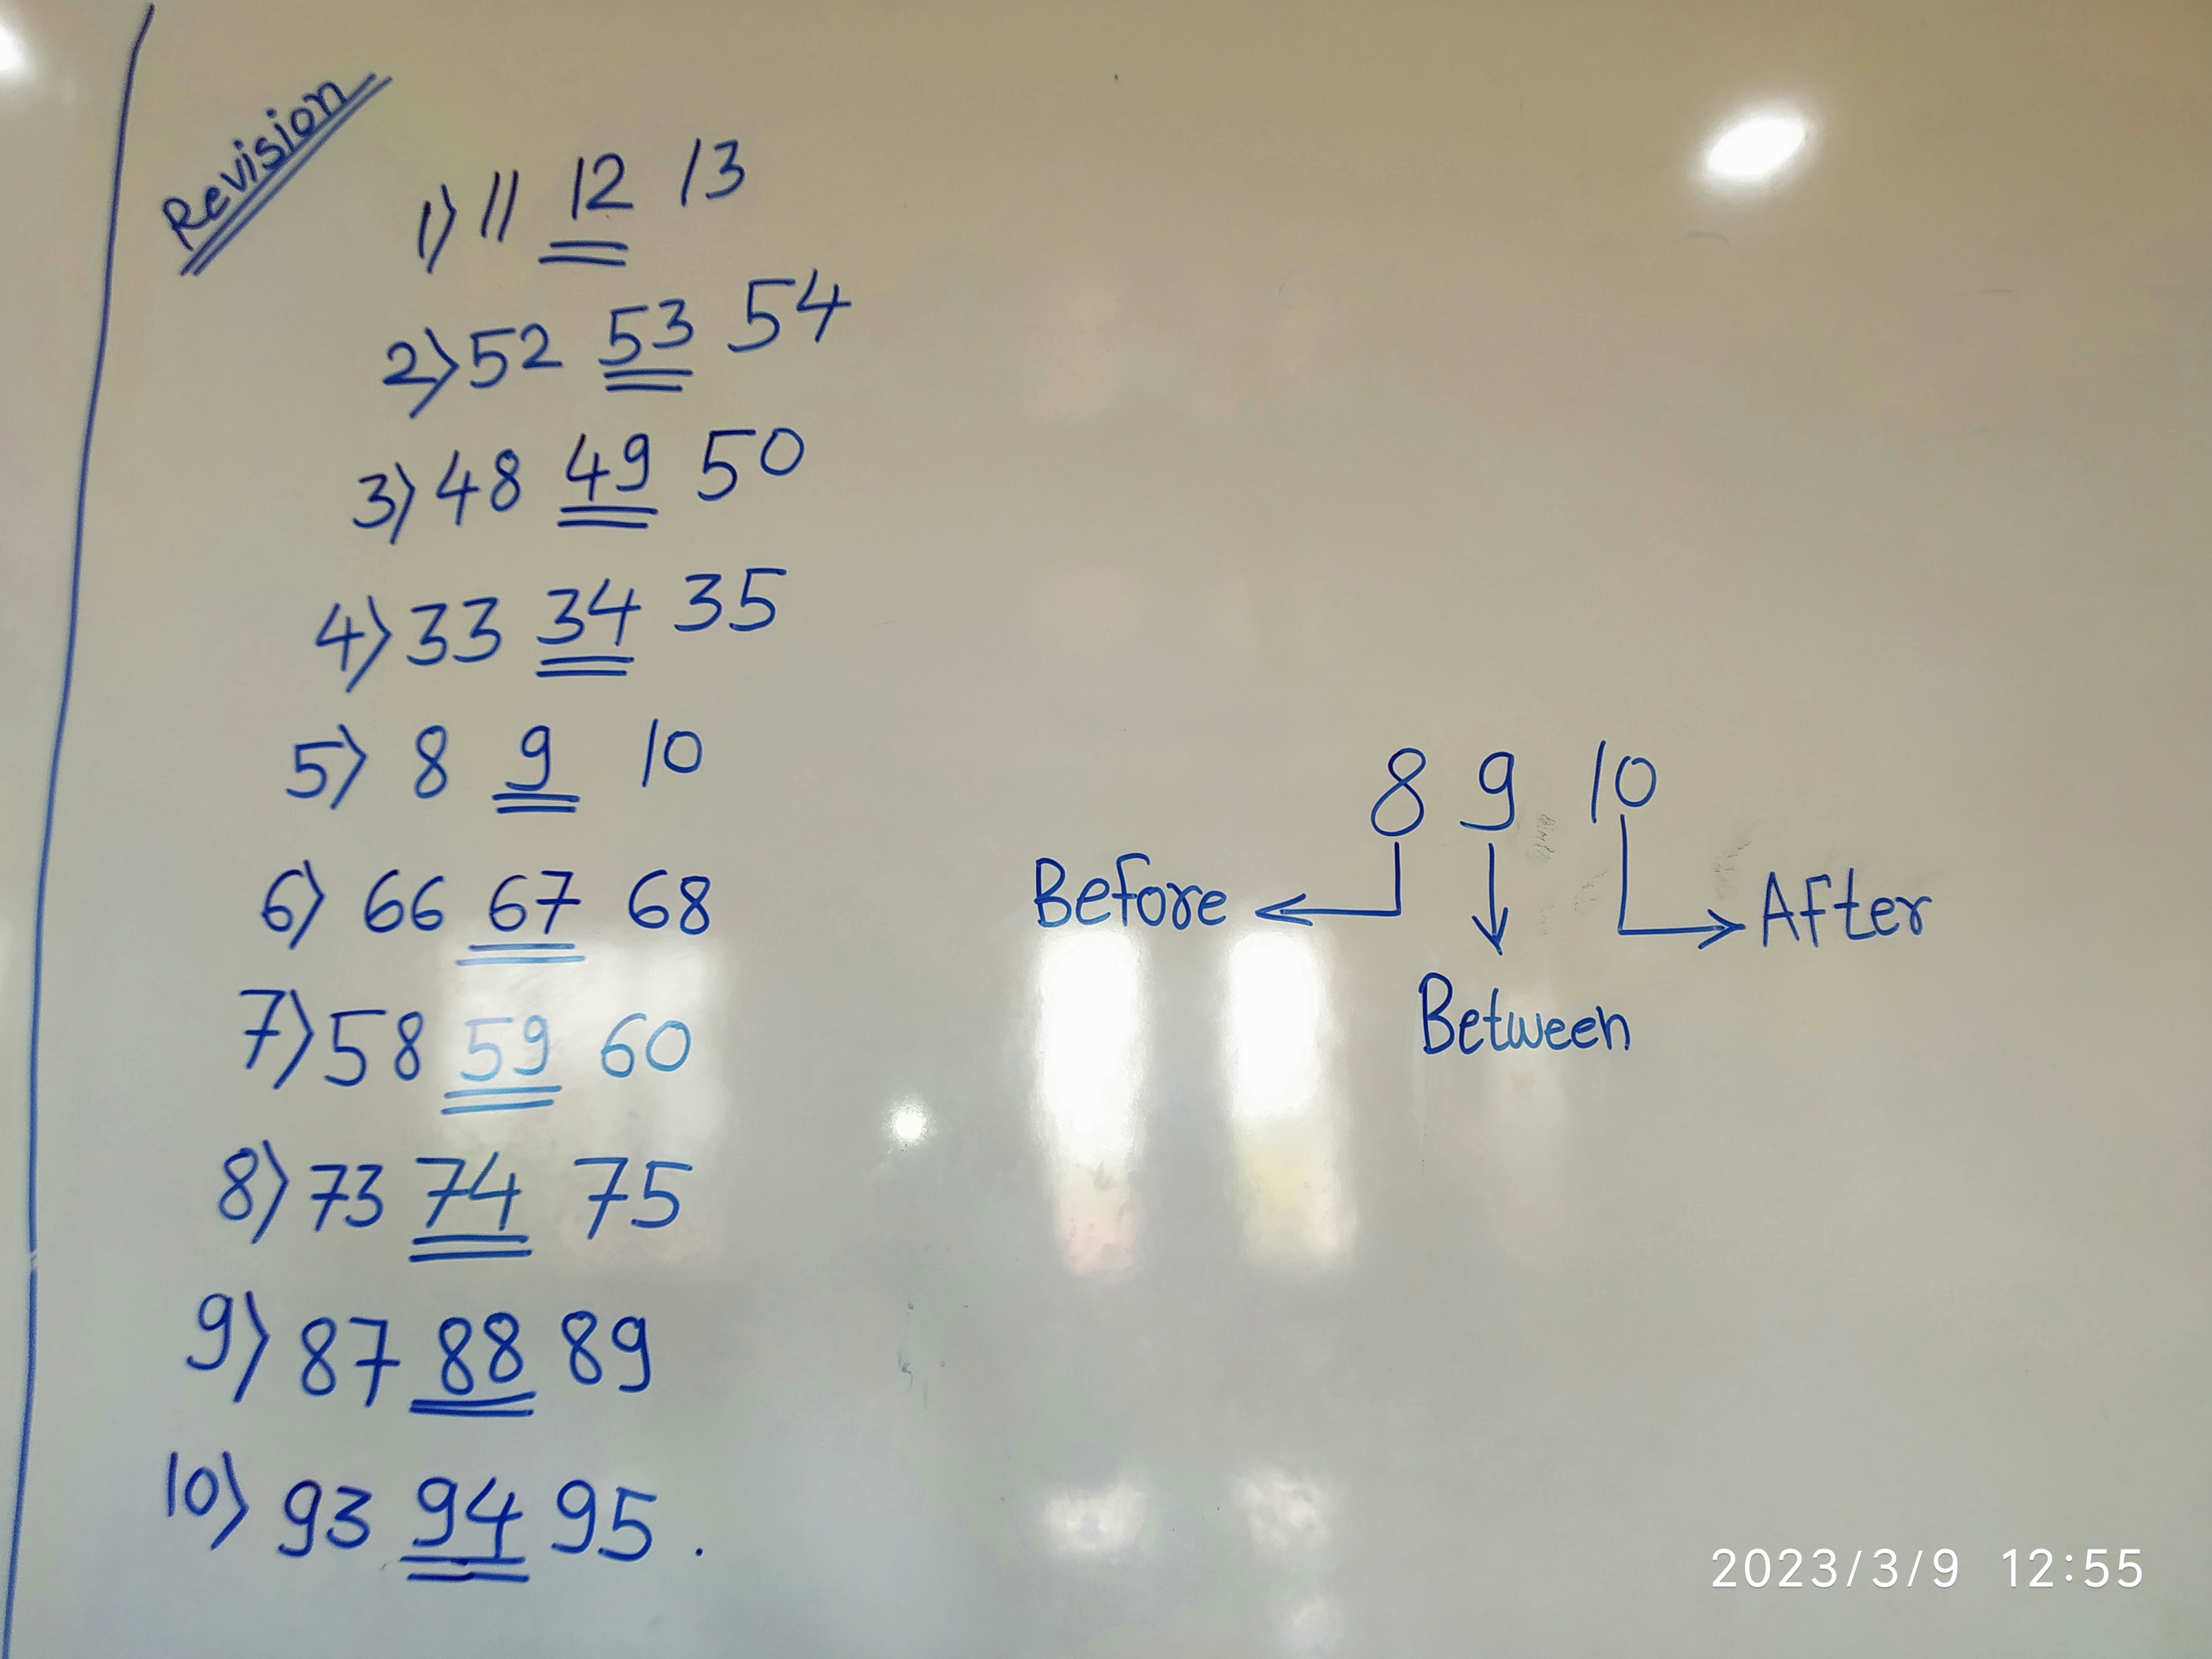 Revision
1) 11 12 13
2) 52 53 54
3) 48 49 50
4) 33 34 35
5) 8 9 10
6) 66 67 68
7) 58 59 60
8) 73 74 75
9) 87 88 89
10) 93 94 95.
8 9 10
Before
After
Between
2023/3/9 12:55